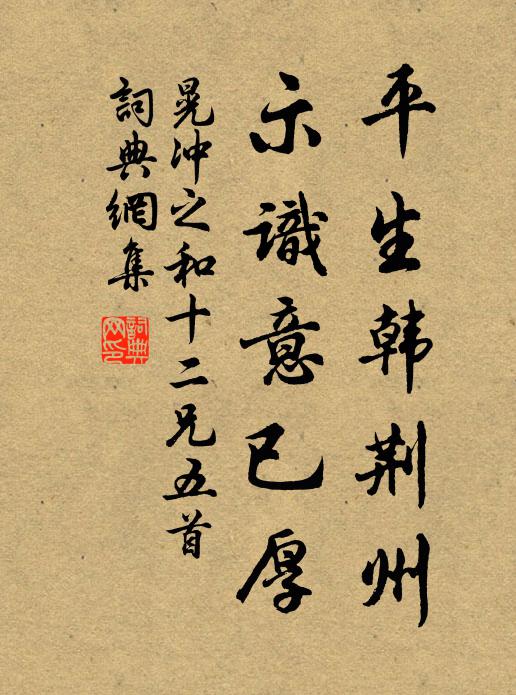 平生韩荆州
示識意已厚
晁冲之和十二兄五首
詞典網集
詞典網印